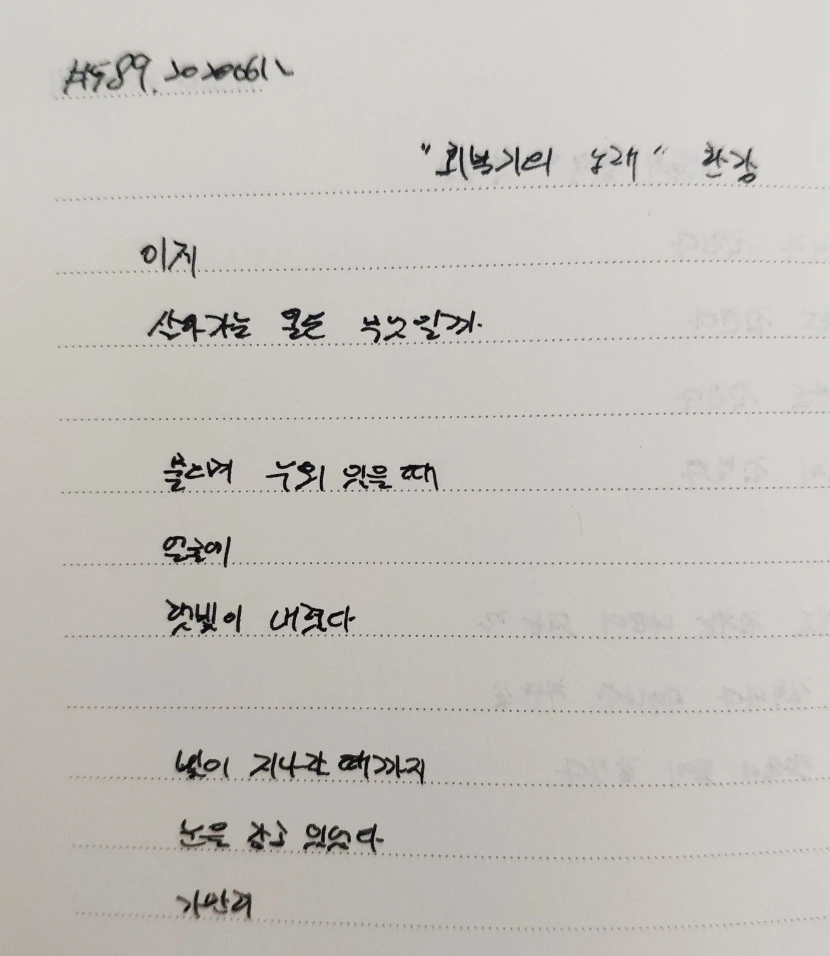 #589. 20200611
"회복기의 노래" 한강
이제
살아가는 일은 무엇일까
물으며 누워 있을 때
얼굴에
햇빛이 내렸다
빛이 지나갈 때까지
눈을 감고 있었다
가만히